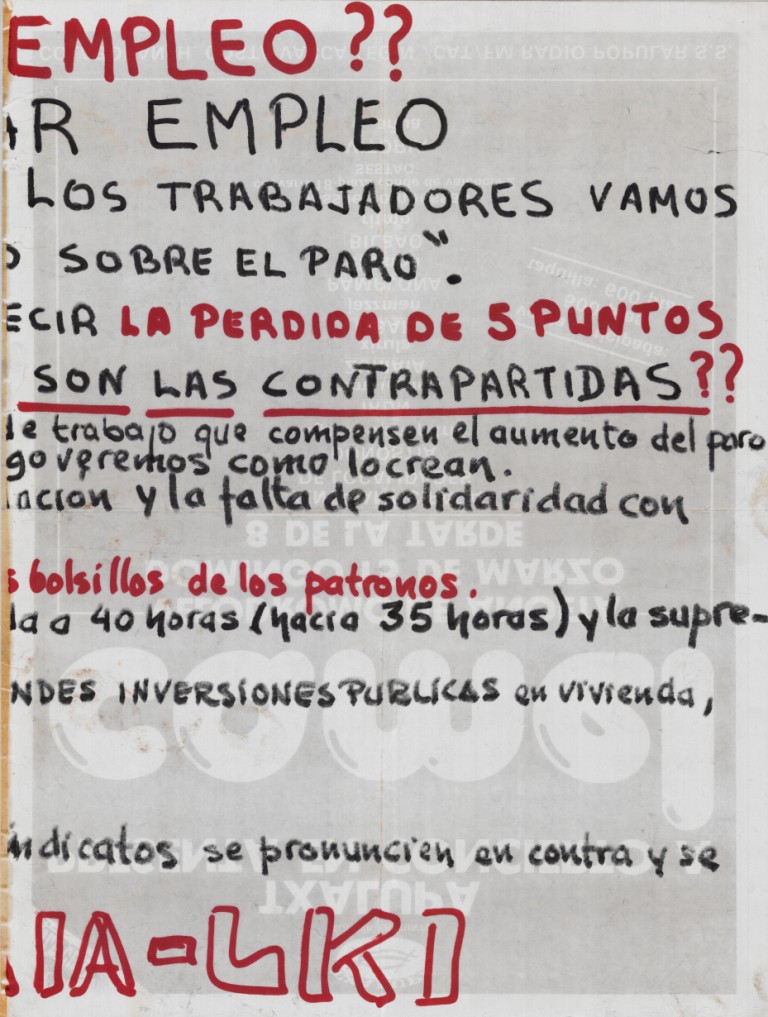 EMPLEO??
AR EMPLEO
LOS TRABAJADORES VAMOS
O SOBRE EL PARO".
ECIR LA PERDIDA DE 5 PUNTOS
SON LAS CONTRAPARTIDAS??
de trabajo que compensen el aumento del paro
go veremos como lo crean.
lacion y la falta de solidaridad con
s bolsillos de los patronos.
da a 40 horas (hacia 35 horas) y la supre-
NDES INVERSIONES PUBLICAS en vivienda,
indicatos se pronuncien en contra y se
IA-LKI
TXALUPA
cowsi
DOMINGO 13 DE MARZO
8 DE LA TARDE
PAMPLONA
BILBAO
SESTAO